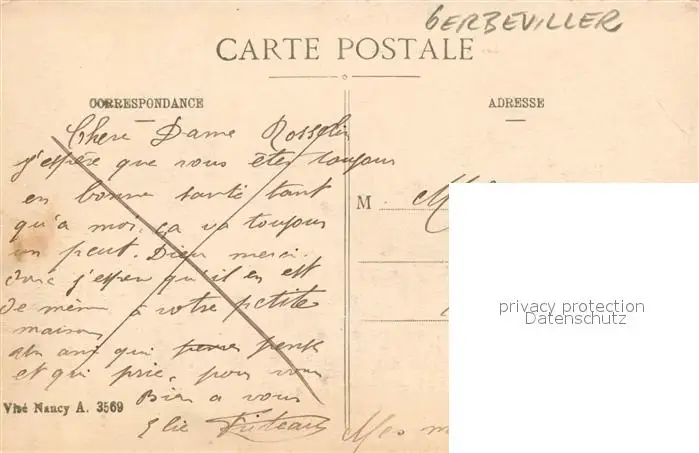 GERBEVILLER
CARTE POSTALE
CORRESPONDANCE
ADRESSE
Chere Dame Rosselin
j'espère que vous êtes toujours
en bonne santé tant
qu'a moi, ça va toujours
un peut. Dieu merci.
donc j'espere qu'il en est
de même à votre petite
maison
un ami qui pense
et qui prie, pour vous
Bien a vous
Elie
Visé Nancy A. 3569
M
Mes
privacy protection
Datenschutz